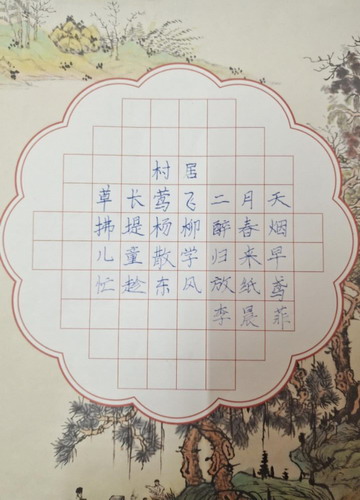 村居
草长莺飞二月天
拂堤杨柳醉春烟
儿童散学归来早
忙趁东风放纸鸢
李晨菲